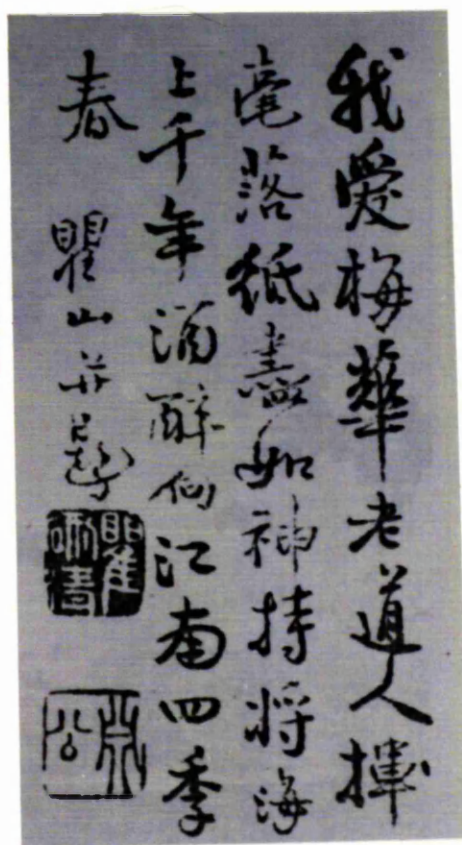 我愛梅華老道人揮
毫落紙盡如神持將海
上千年酒醉倒江南四季
春 瞿山并題